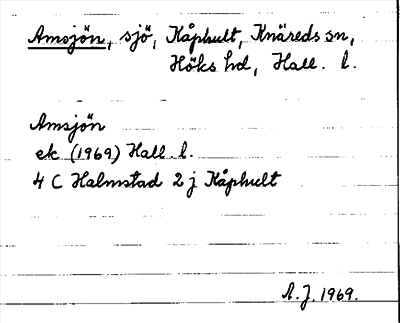 Amsjön, sjö, Kåphult, Knäreds sn,
Höks hd, Hall. l.
Amsjön
ek (1969) Hall. l.
4 C Halmstad 2 j Kåphult
A.J. 1969.